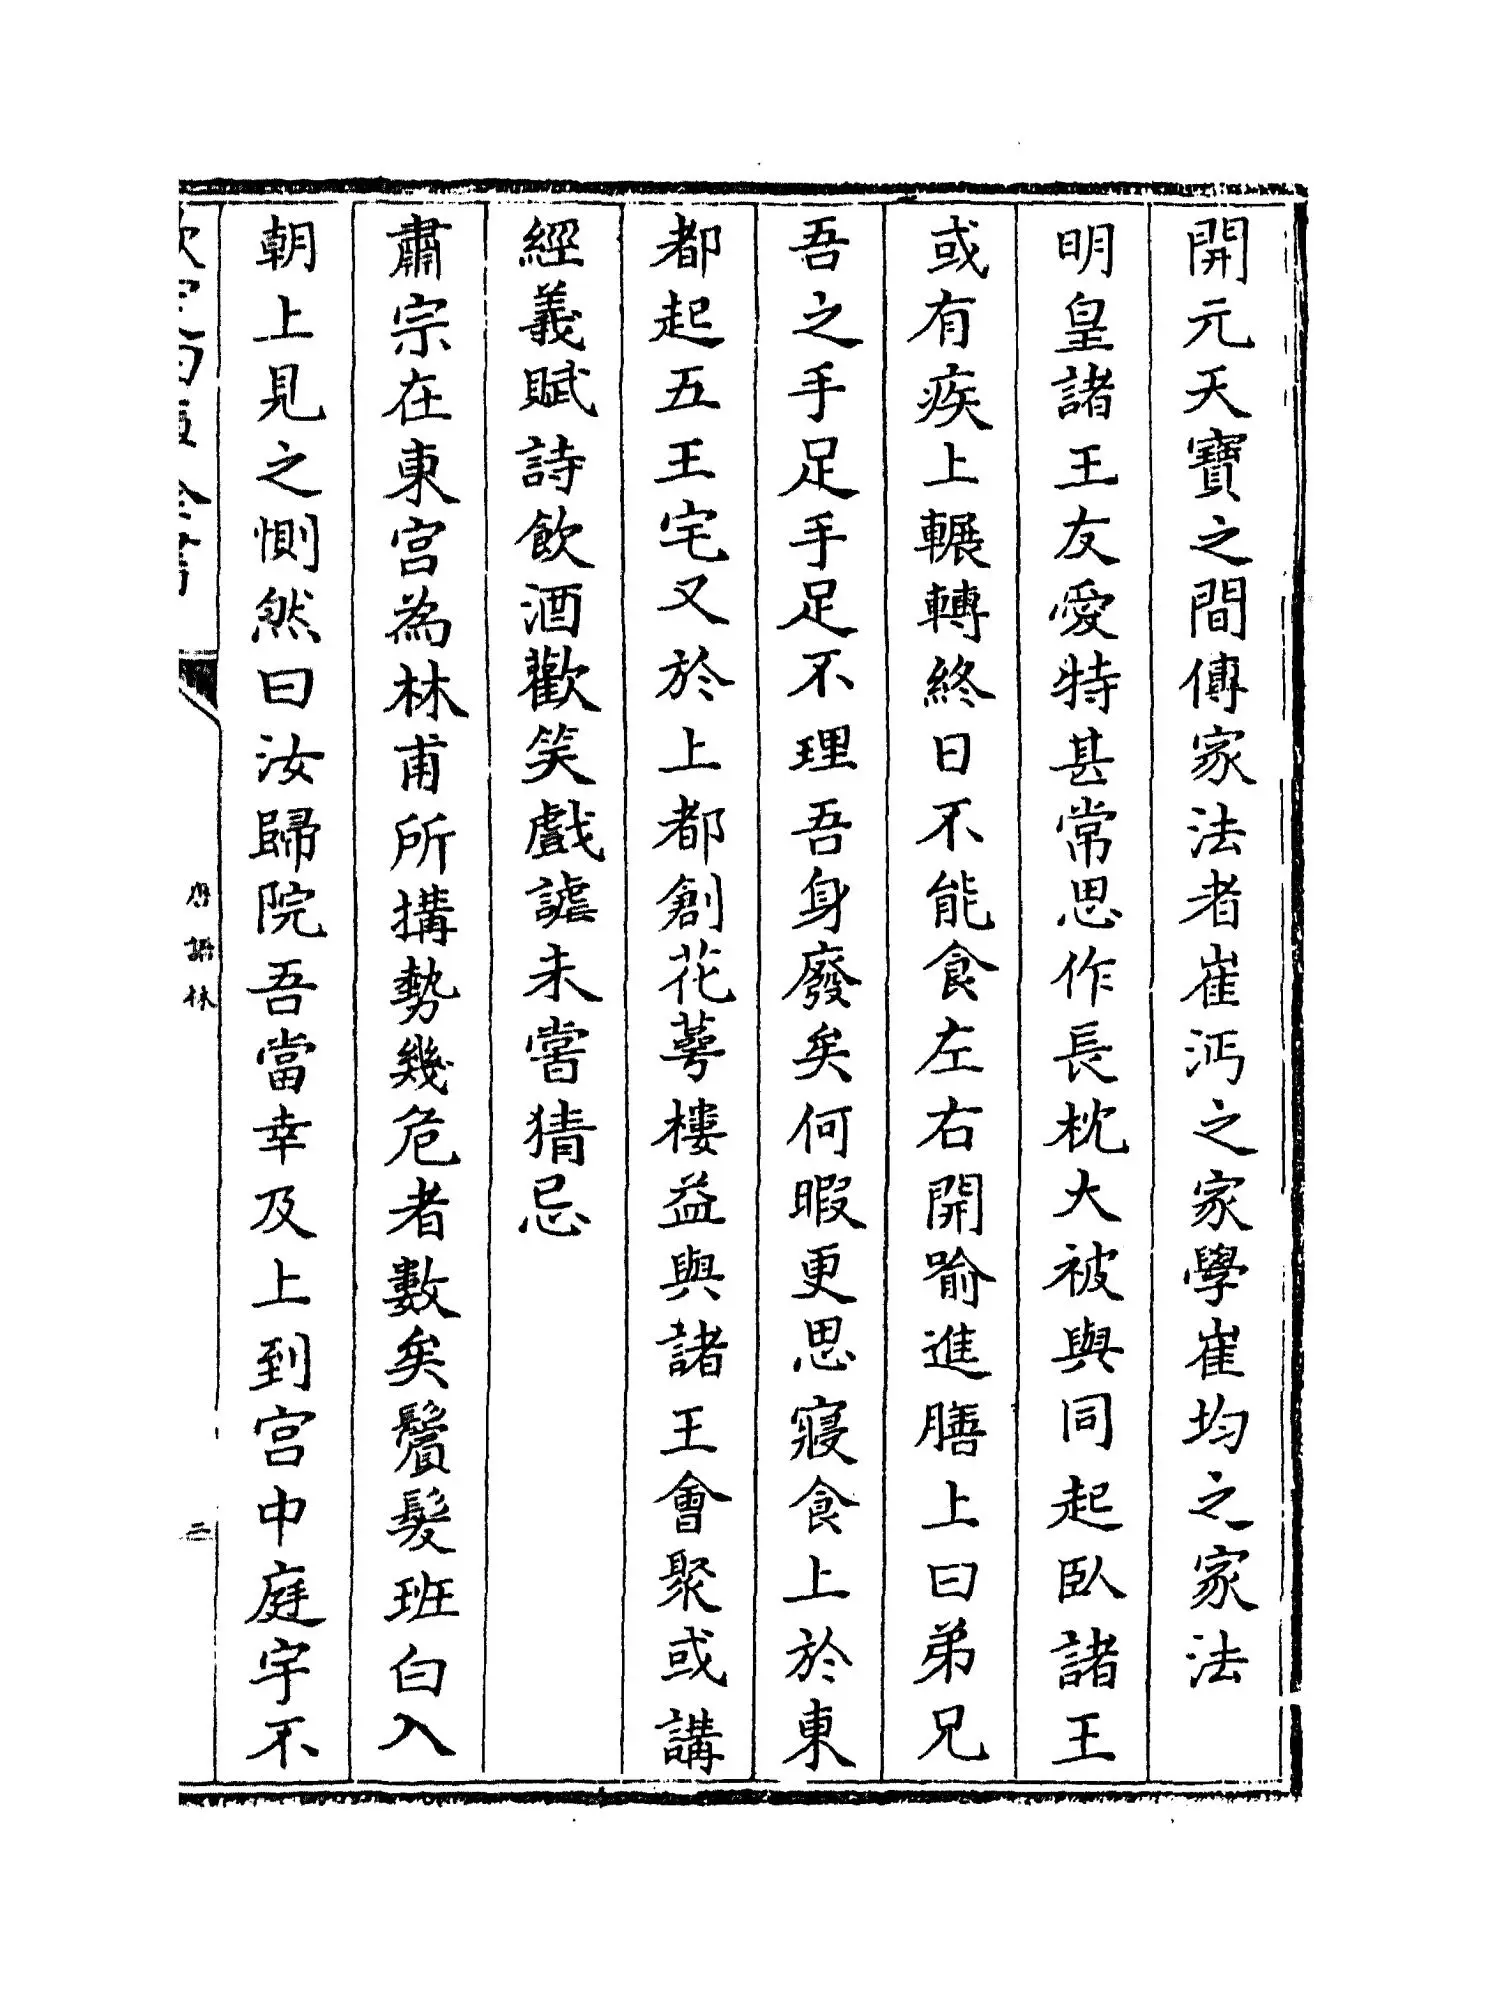 開元天寶之間傳家法者崔沔之家學崔均之家法
明皇諸王友愛特甚常思作長枕大被與同起臥諸王
或有疾上輾轉終日不能食左右開喻進膳上曰弟兄
吾之手足手足不理吾身廢矣何暇更思寢食上於東
都起五王宅又於上都創花萼樓益與諸王會聚或講
經義賦詩飲酒歡笑戲謔未嘗猜忌
肅宗在東宮為林甫所搆勢幾危者數矣鬢髮班白入
朝上見之惻然曰汝歸院吾當幸及上到宮中庭宇不
唐語林